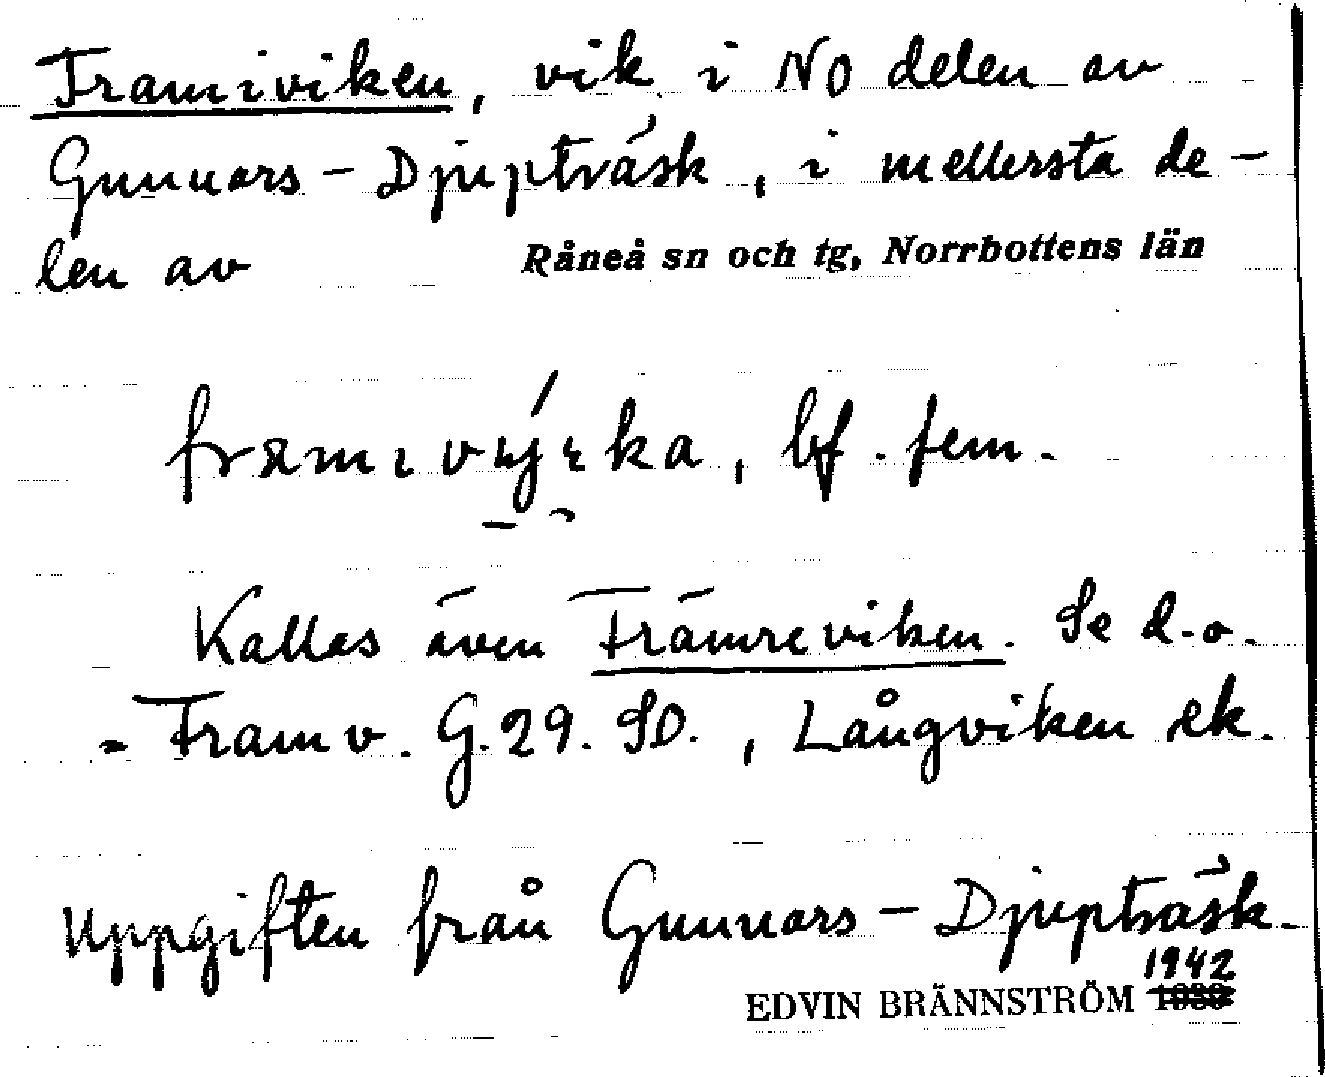 Framiviken, vik i NO delen av
Gunnars-Djupträsk, i mellersta de-
len av Råneå sn och tg, Norrbottens län
bf. fem.
Kallas även Främreviken. Se d.o.
- Framv. G.29. SO., Långviken ek.
Uppgiften från Gunnars-Djupträsk.
1942
EDVIN BRÄNNSTRÖM 1939